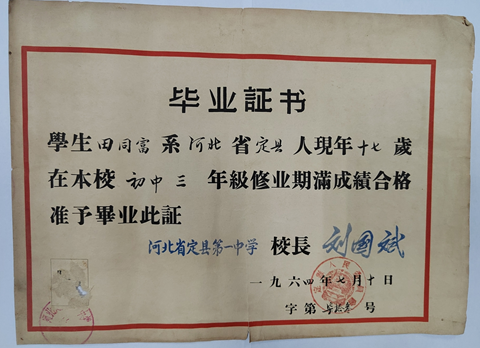 毕业証书
學生田同富系河北省定县人現年十七歲
在本校初中三年級修业期滿成績合格
准予畢业此証
河北省定县第一中学 校長 刘國斌
一九六四年七月十日
字第 号